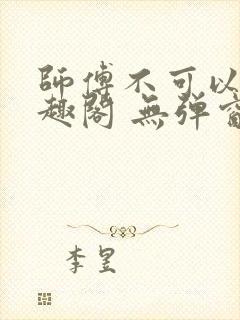 師傅不可以
趣閣 無彈窗
李昱